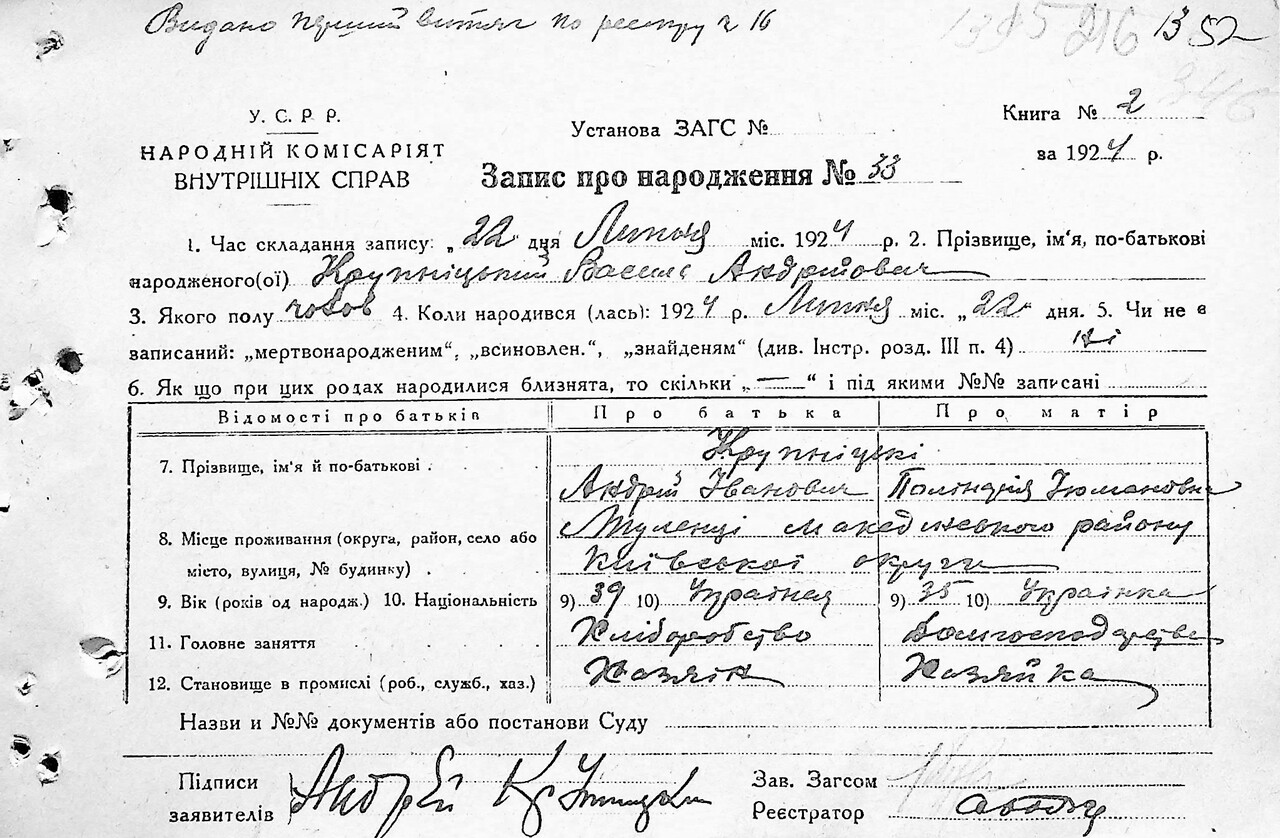 Видано перший витяг по реєстру № 16
1352
У. С. Р. Р.
НАРОДНІЙ КОМІСАРІЯТ
ВНУТРІШНІХ СПРАВ
Установа ЗАГС №
Книга № 2
за 1924 р.
Запис про народження № 33
1. Час складання запису: „22" дня Липня міс. 1924 р. 2. Прізвище, ім'я, по-батькові
народженого(ої) Крупніцький Василь Андрійович
3. Якого полу чолов 4. Коли народився (лась): 1924 р. Липня міс. „22" дня. 5. Чи не є
записаний: „мертвонародженим", „всиновлен.", „знайденям" (див. Інстр. розд. III п. 4) ні
6. Як що при цих родах народилися близнята, то скільки „—" і під якими №№ записані
Відомості про батьків Про батька Про матір
7. Прізвище, ім'я й по-батькові . Крупніцкі
Андрій Іванович
8. Місце проживання (округа, район, село або Туленці району
місто, вулиця, № будинку) . Київської округи
9. Вік (років од народж.) 10. Національність 9) 39 10) Українец 9) 35 10) Українка
11. Головне заняття Хліборобство Домгосподарство
12. Становище в промислі (роб., служб., хаз.) Хазяїн Хазяйка
Назви и №№ документів або постанови Суду
Підписи
заявителів Андрей
Зав. Загсом
Реєстратор